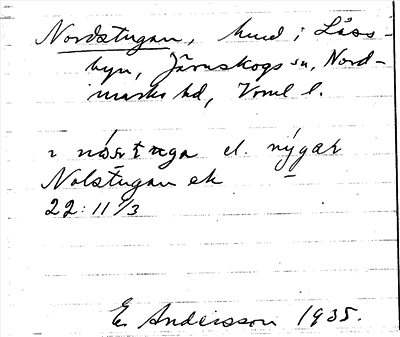 Nordstugan, hmd i Låss-
byn, Järnskogs sn, Nord-
marks hd, Vrml l.
nårstuga el. nýgar
Nolstugan ek
22:11 1/3
E. Andersson 1935.